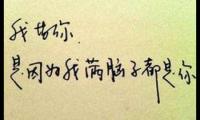 我甘你
是因为我满脑子都是你